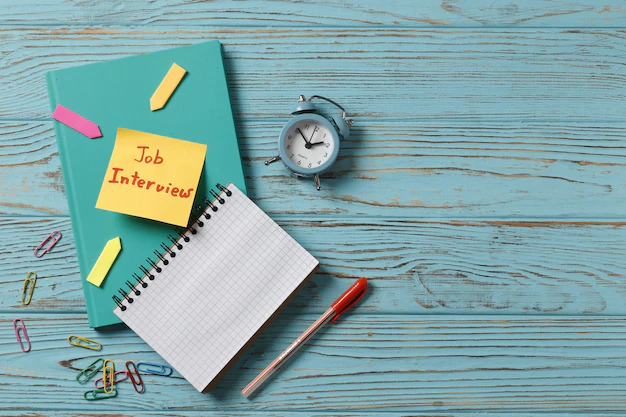 Job
Interview